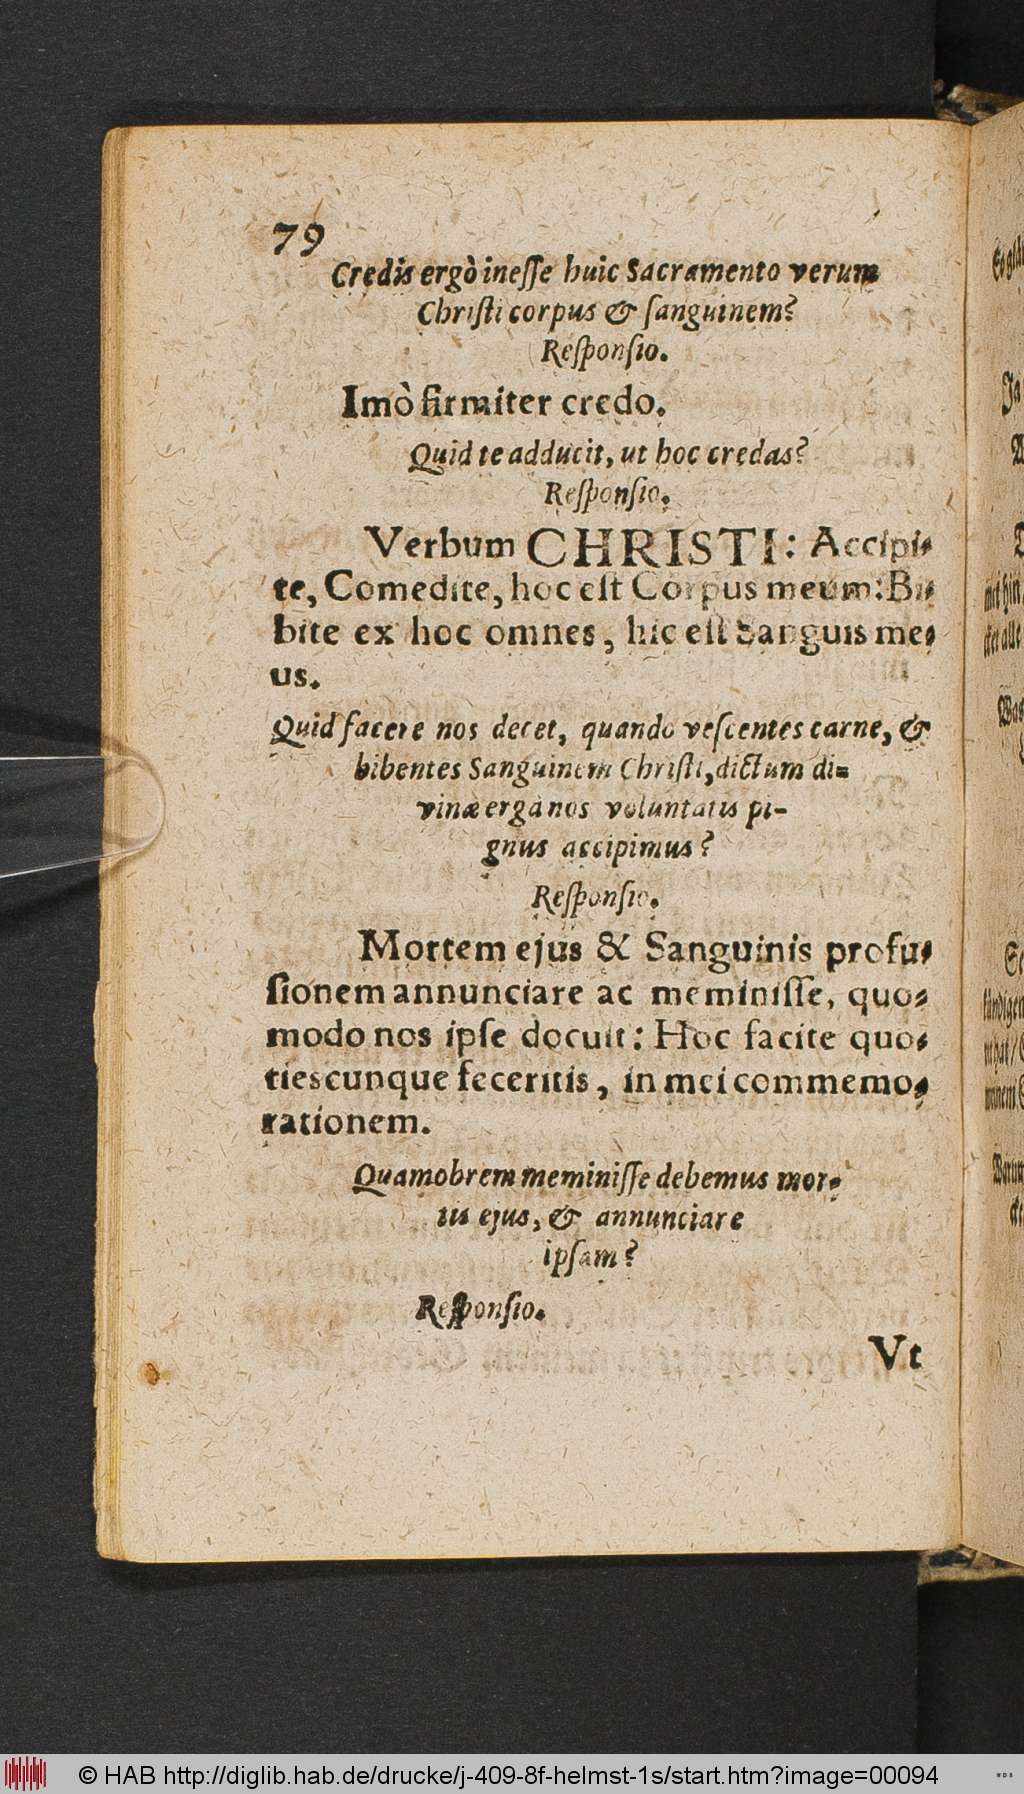 79
Credis ergò ineſſe huic Sacramento verum
Chriſti corpus & ſanguinem?
Reſponſio.
Imò firmiter credo.
Quid te adducit, ut hoc credas?
Reſponſio.
Verbum CHRISTI: Accipi-
te, Comedite, hoc eſt Corpus meum: Bi-
bite ex hoc omnes, hic eſt Sanguis me-
us.
Quid facere nos decet, quando veſcentes carne, &
bibentes Sanguinem Chriſti, dictum di-
vinæ ergà nos voluntatis pi-
gnus accipimus?
Reſponſio.
Mortem ejus & Sanguinis profu-
ſionem annunciare ac meminiſſe, quo-
modo nos ipſe docuit: Hoc facite quo-
tiescunque feceritis, in mei commemo-
rationem.
Quamobrem meminiſſe debemus mor-
tis ejus, & annunciare
ipſam?
Reſponſio.
Vt
© HAB http://diglib.hab.de/drucke/j-409-8f-helmst-1s/start.htm?image=00094